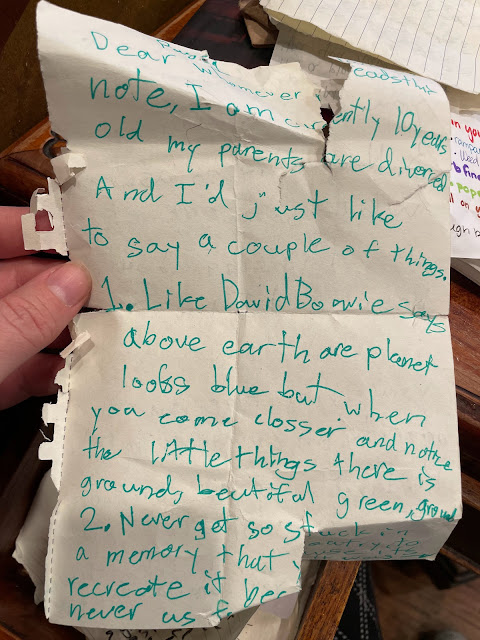 Dear Whomever readsthis
note, I am currently 10 years
old my parents are divered
And I'd just like
to say a couple of things.
1. Like David Bowie says
above earth are planet
looks blue but when
you come closser and notice
the little things there is
ground, beutiful green, ground
2. Never get so stuck in
a memory that
recreate it bec
never us